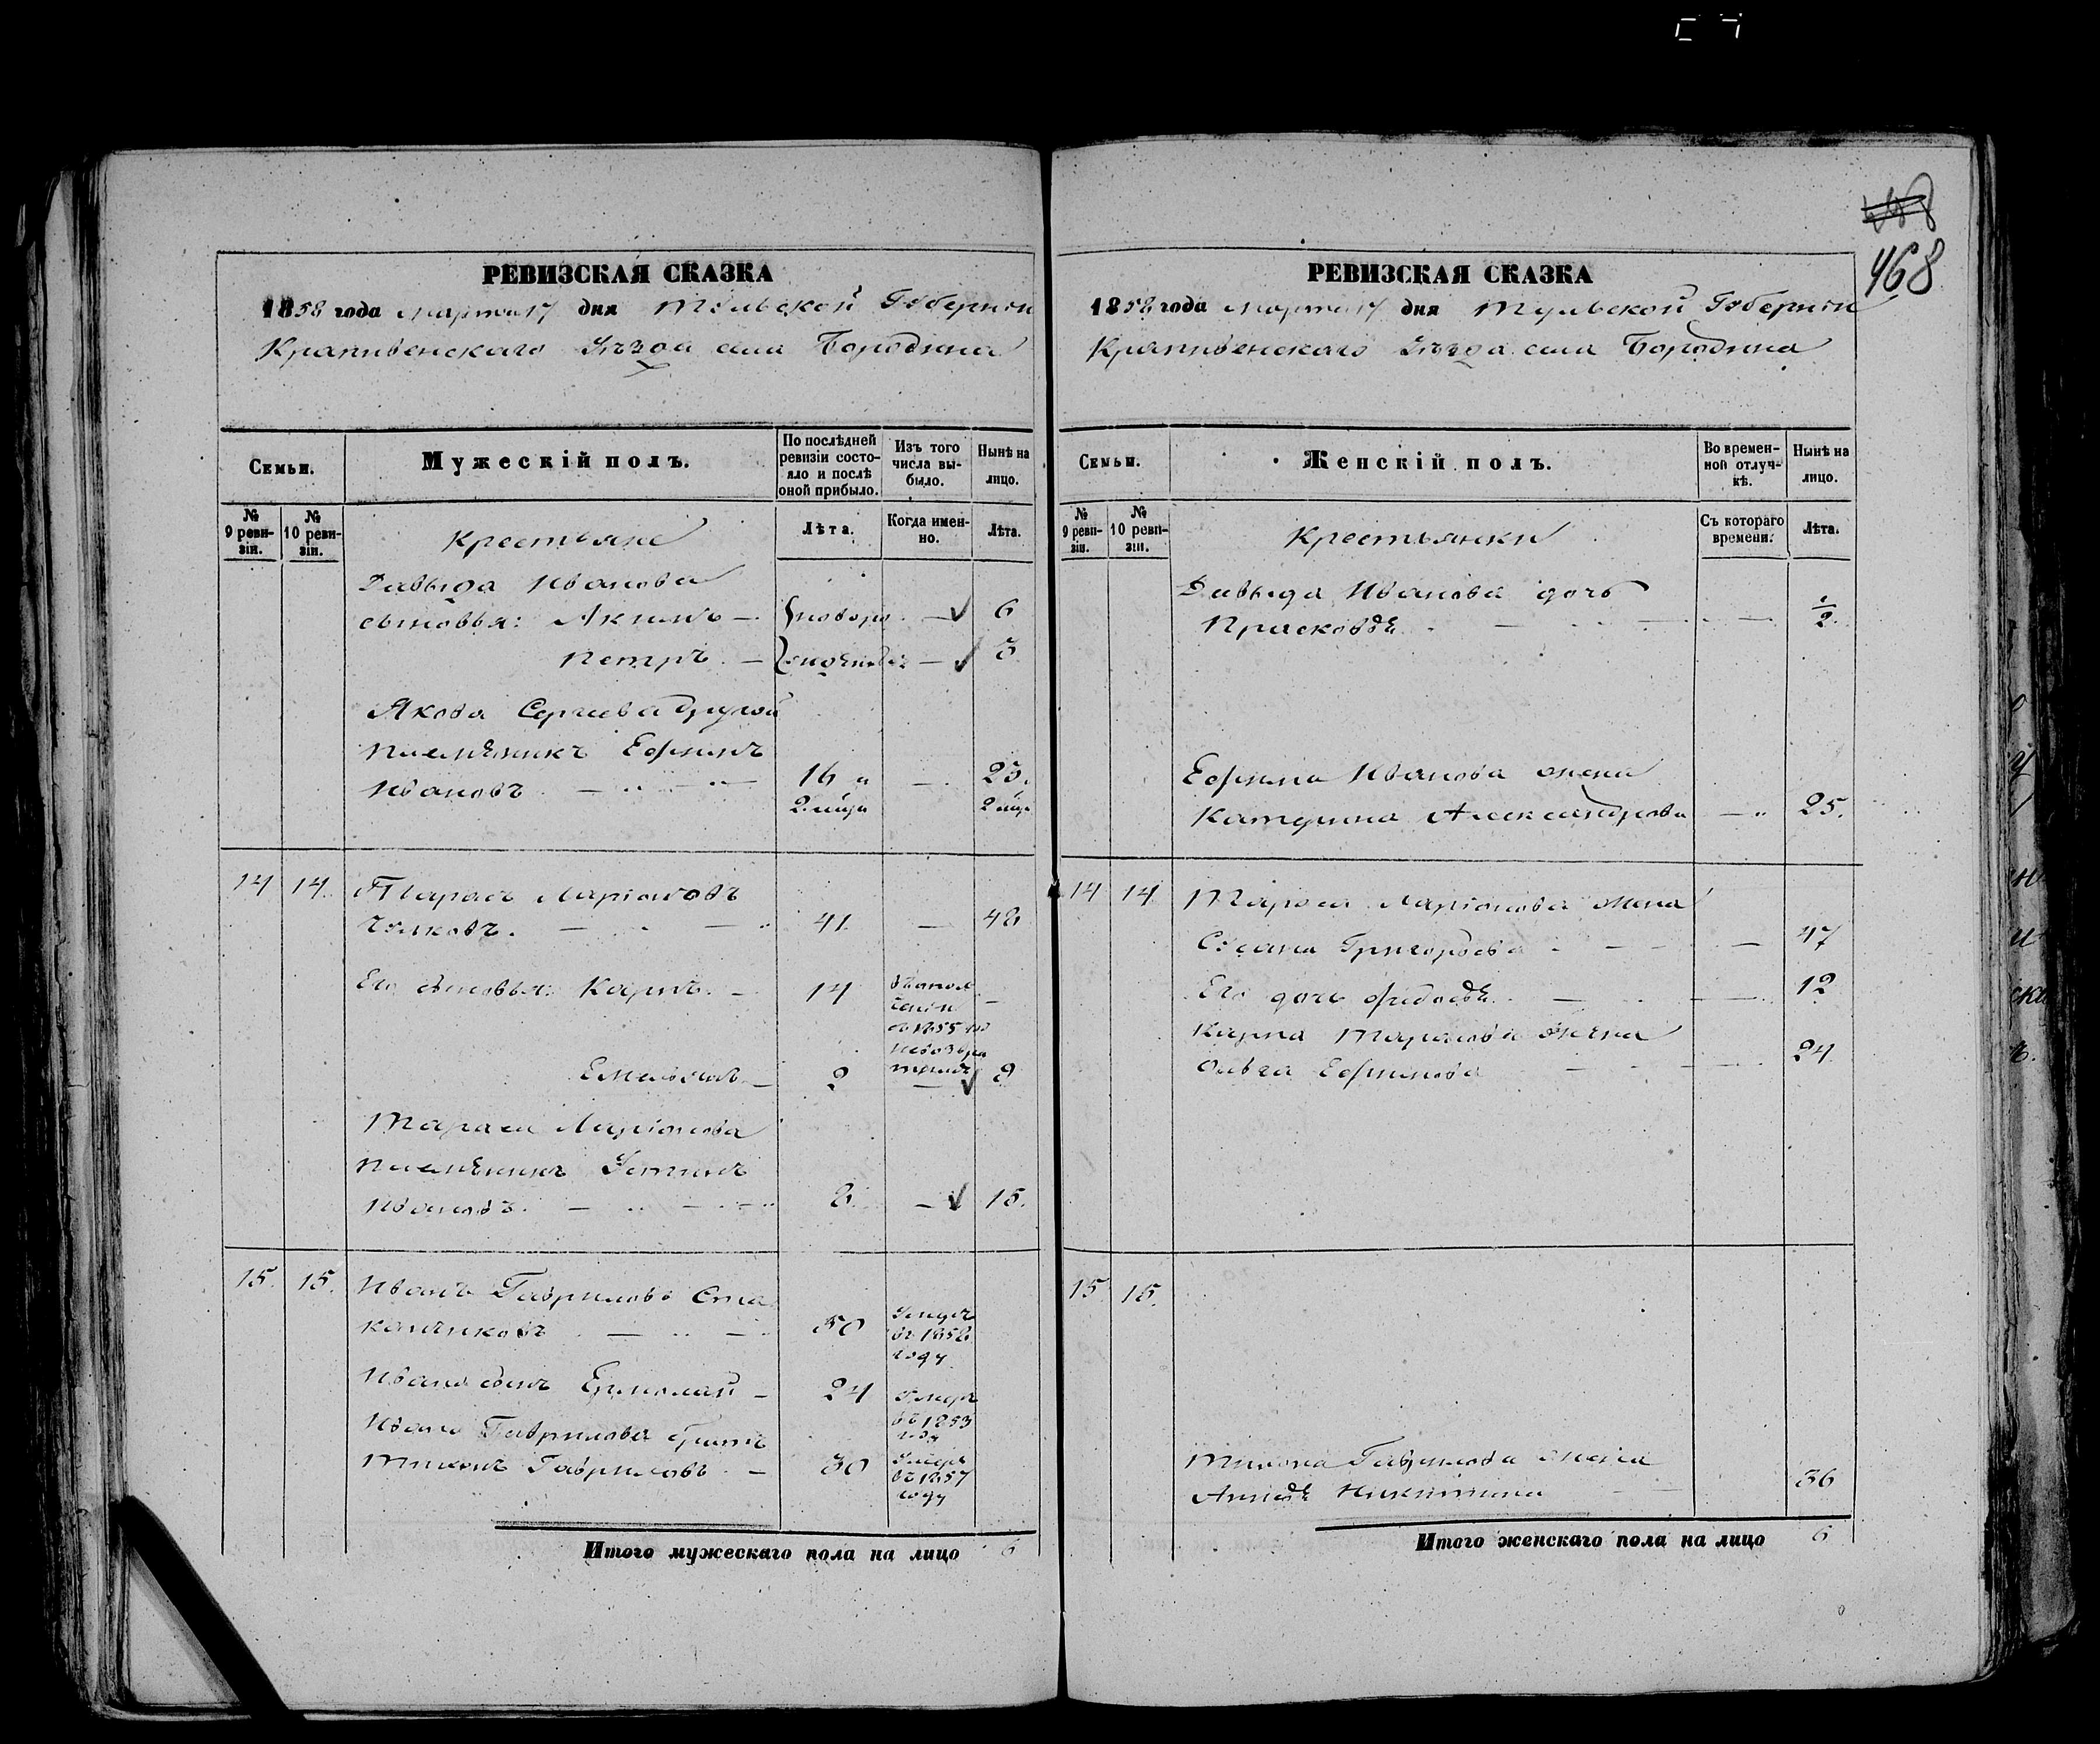 468
РЕВИЗСКАЯ СКАЗКА
1858 года Марта 17 дня Тульской Губернiи
Крапивенскаго Уѣзда села Бородина
Семьи.
Мужескiй полъ.
По послѣдней ревизiи состояло и послѣ оной прибыло.
Изъ того числа выбыло.
Нынѣ на лицо.
№ 9 ревизiи.
№ 10 ревизiи.
Крестьяне
Лѣта.
Когда именно.
Лѣта.
Давыда Иванова
сыновья: Акимъ — 6
Петръ — 3
Якова Сергеева другой
племѣникъ Ефимъ
Ивановъ 16 — 23.
2 лица 2 лица
14 14 Тарасъ Ларiоновъ
41 — 48
Его сыновья: Карпъ — 14
въ 1855
Емельянъ — 2 — 9
Тараса Ларiонова
племѣникъ Устинъ
Ивановъ. 8. — 15.
15. 15. Иванъ Гавриловъ Ста
канчиковъ 50 Умеръ въ 1858 году
Ивана сынъ Ермолай — 24 Умеръ въ 1853 году
Ивана Гаврилова братъ
Тихонъ Гавриловъ — 30 Умеръ въ 1857 году
Итого мужескаго пола на лицо 6
РЕВИЗСКАЯ СКАЗКА
1858 года Марта 17 дня Тульской Губернiи
Крапивенскаго Уѣзда села Бородина
Семьи.
Женскiй полъ.
Во временной отлучкѣ.
Нынѣ на лицо.
№ 9 ревизiи.
№ 10 ревизiи.
Крестьянки
Съ котораго времени.
Лѣта.
Давыда Иванова дочь
Прасковья — 1/2.
Ефима Иванова жена
Катерина Александрова — 25.
14 14. Тараса Ларiонова жена
Григорьева — 47
Его дочь — 12
Карпа Тарасова жена
Ольга Ефимова — 24.
15. 15.
Тихона Гаврилова жена
Никитина 36
Итого женскаго пола на лицо 6